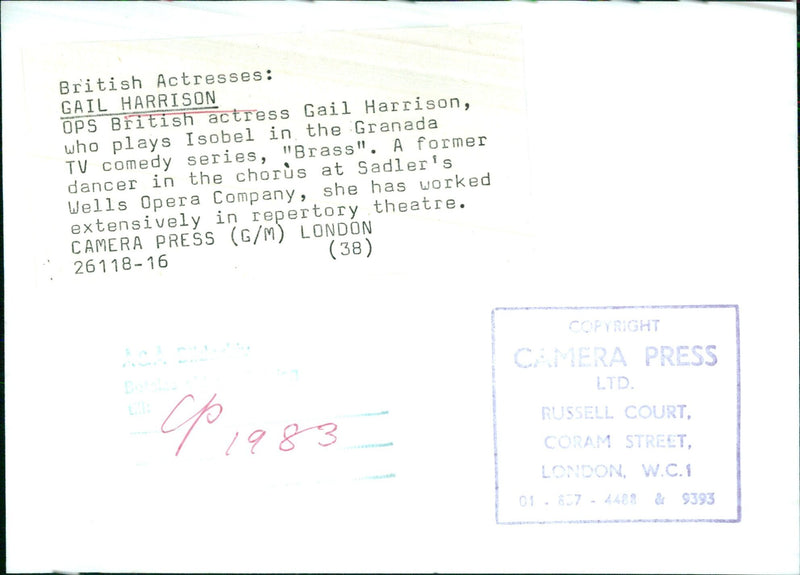 British Actresses:
GAIL HARRISON
OPS British actress Gail Harrison,
who plays Isobel in the Granada
TV comedy series, "Brass". A former
dancer in the chorus at Sadler's
Wells Opera Company, she has worked
extensively in repertory theatre.
CAMERA PRESS (G/M) LONDON
26118-16 (38)
CP 1983
COPYRIGHT
CAMERA PRESS
LTD.
RUSSELL COURT,
CORAM STREET,
LONDON, W.C.1
01 - 837 - 4488 & 9393